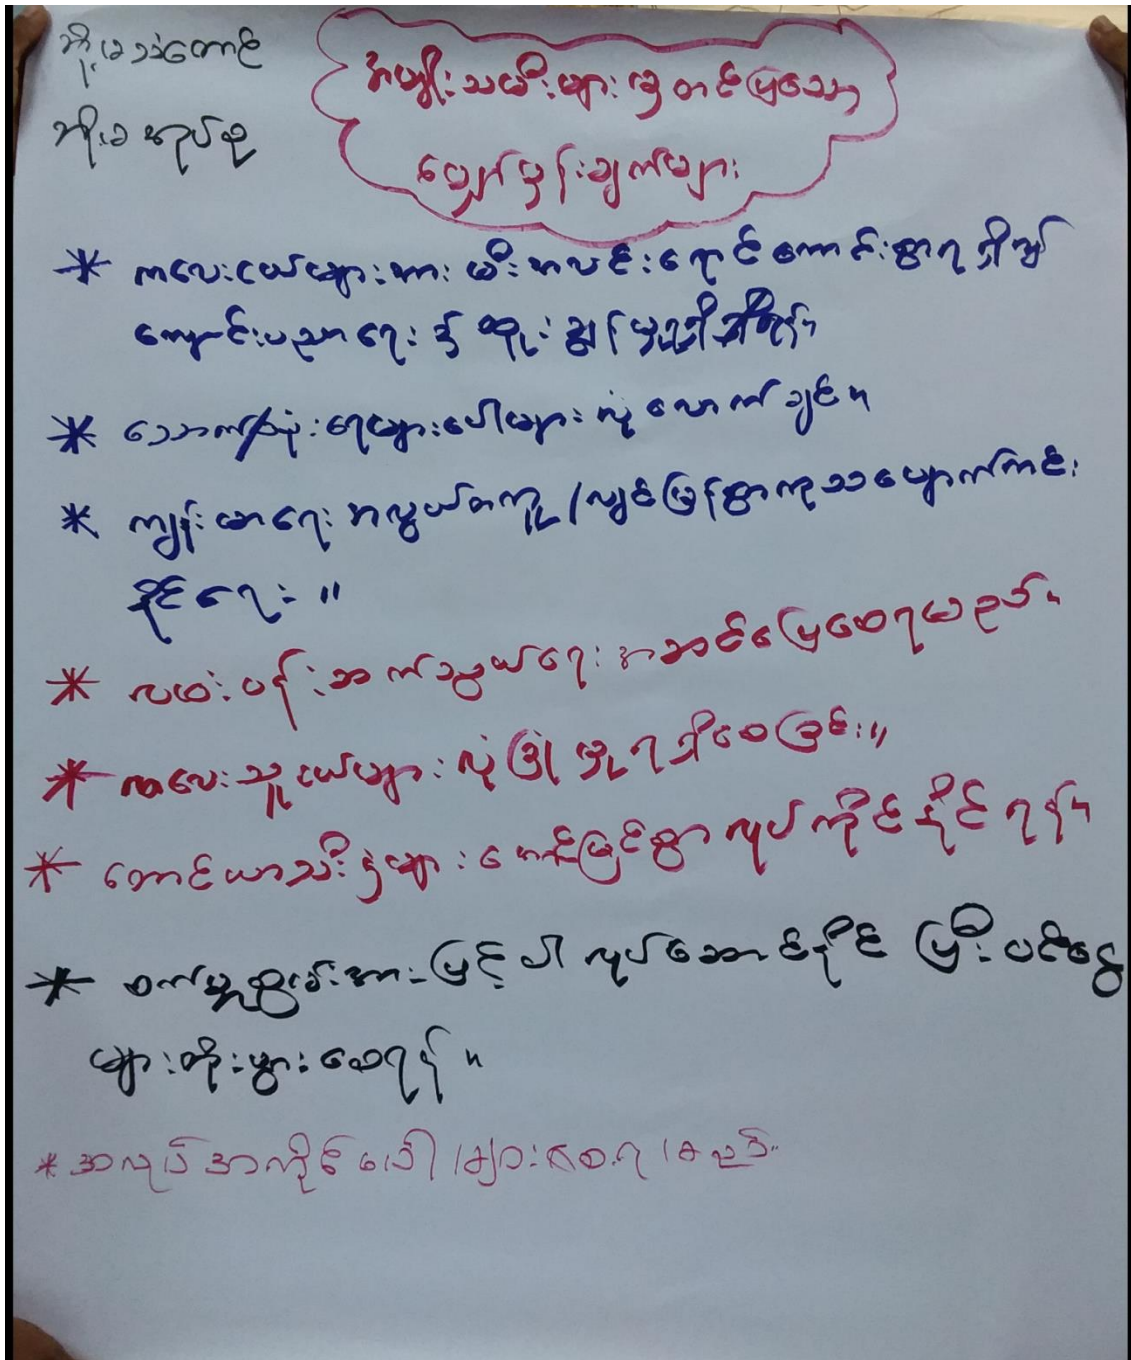 အမျိုးသမီးများမှ တင်ပြသော
မျှော်မှန်းချက်များ
* ကလေးငယ်များအား မီးအလင်းရောင်ကောင်းစွာရရှိ၍
ကျောင်းပညာရေး ထူးချွန်မှုရရှိရန်။
* သောက်/သုံးရေများပေါများလုံလောက်ချင်။
* ကျန်းမာရေး အလွယ်တကူ/လျင်မြန်စွာကုသပျောက်ကင်း
နိုင်ရေး ။
* လမ်းပန်းဆက်သွယ်ရေး အဆင်ပြေစေရမည်။
* ကလေးသူငယ်များ လုံခြုံမှုရရှိစေခြင်း။
* တောင်ယာသီးနှံများ အောင်မြင်စွာ လုပ်ကိုင်နိုင်ရန်။
* စက်မှုစွမ်းအားမြင့်ပါ လုပ်ဆောင်နိုင်ပြီး ဝင်ငွေ
များတိုးပွားစေရန် ။
* အလုပ်အကိုင်ပေါများစေရမည်။